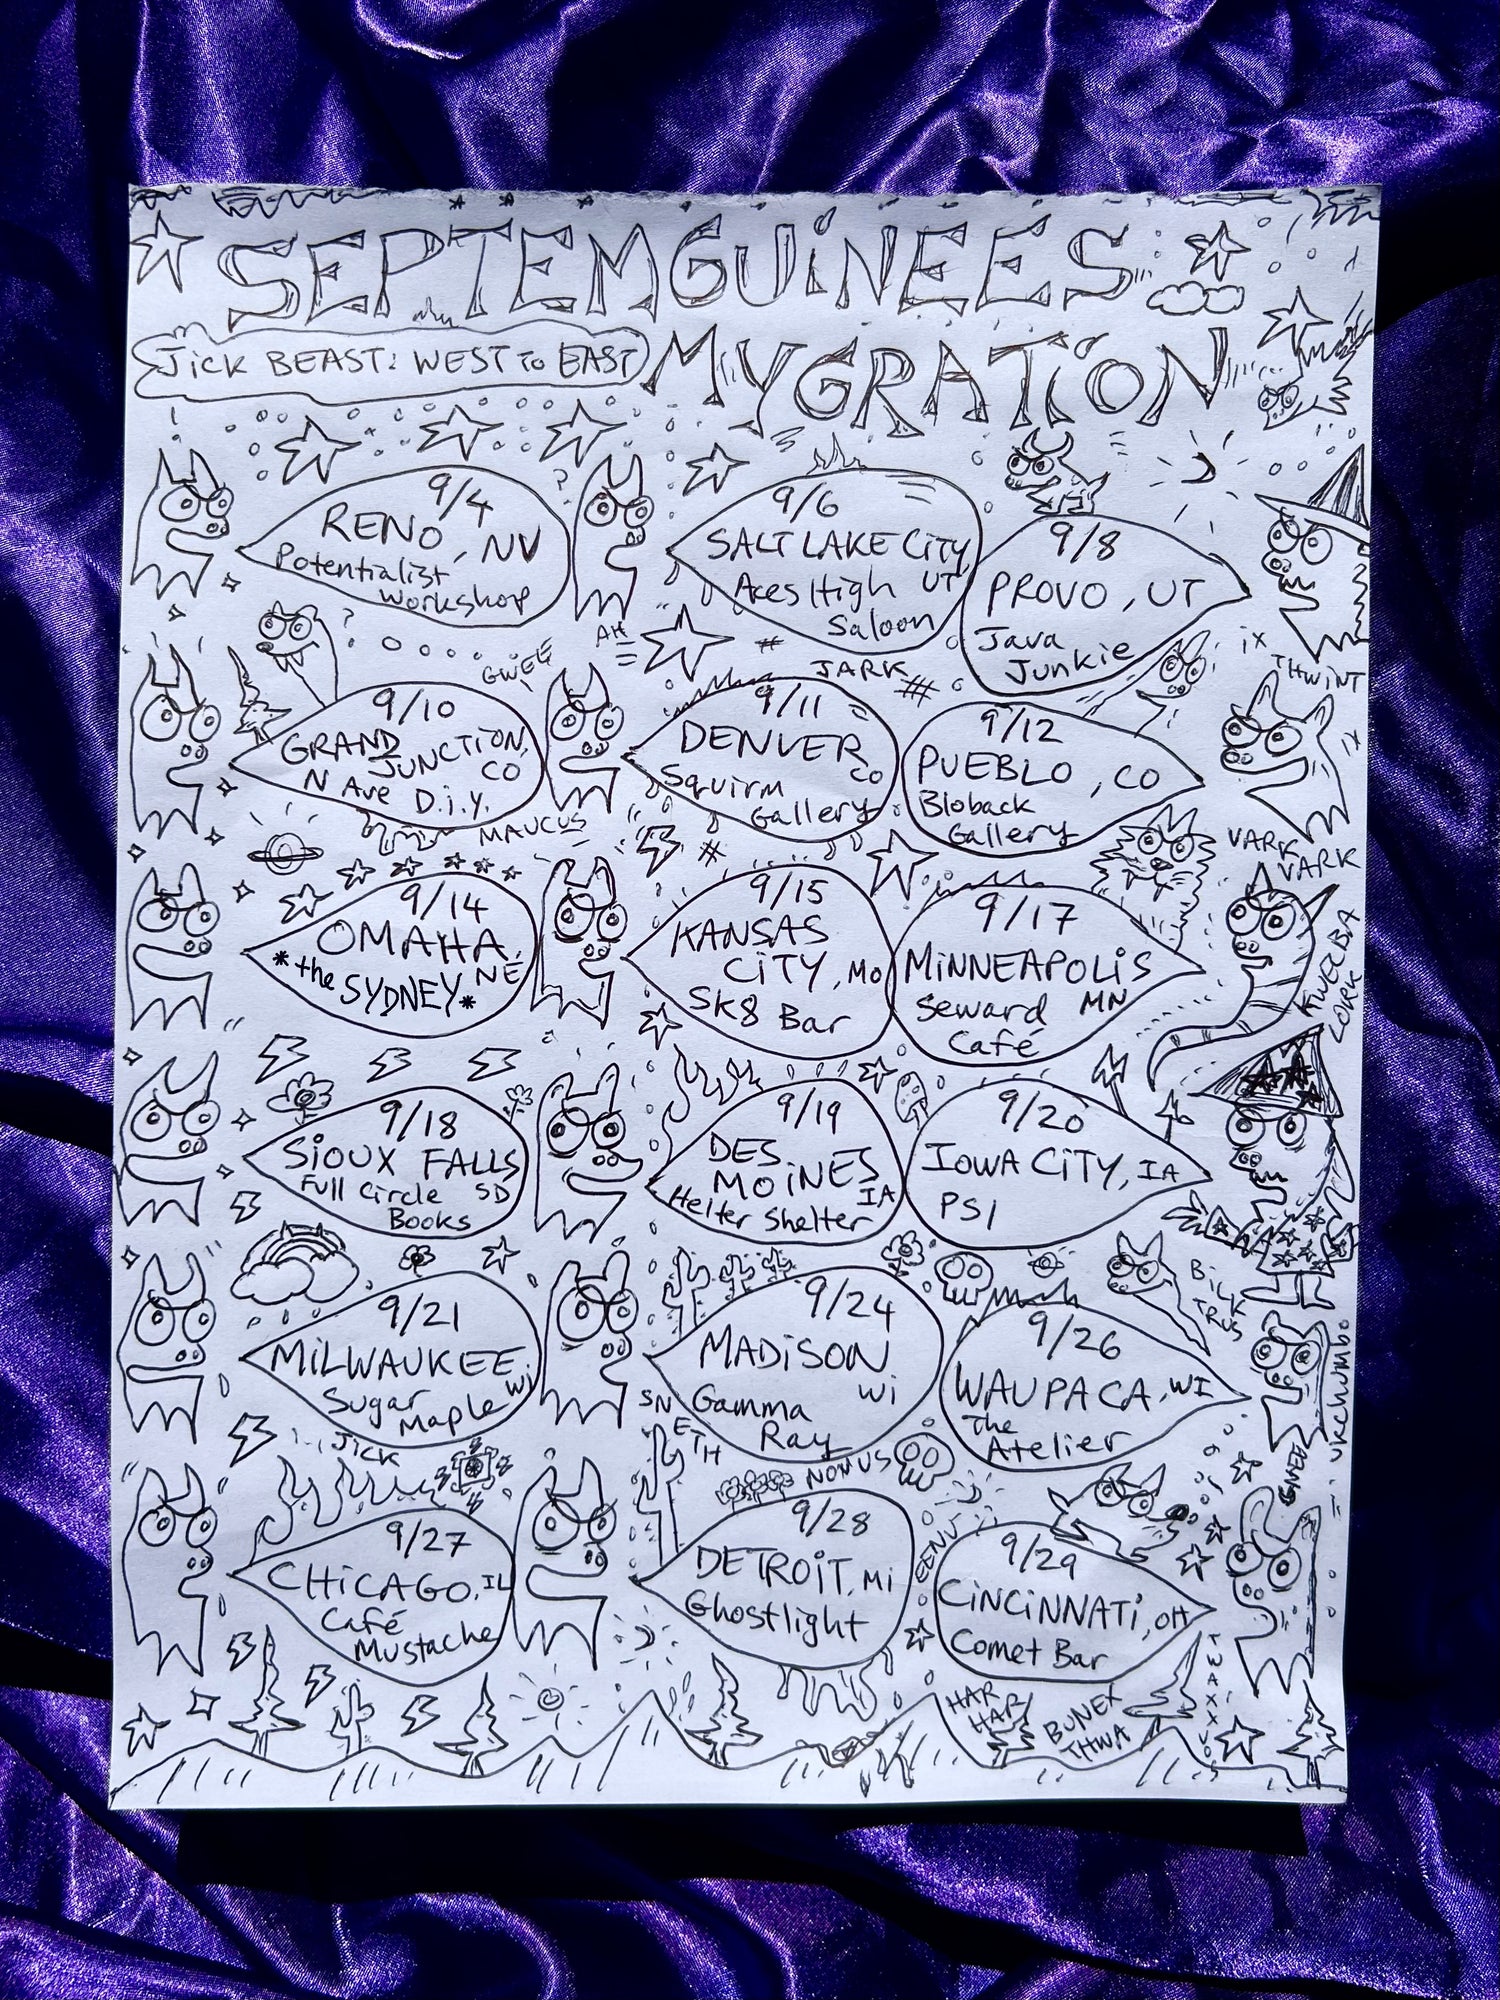 SEPTEMGUiNEES
JiCK BEAST: WEST to EAST
MYGRATiON
9/4
RENO, NV
Potentialist
Workshop
9/6
SALT LAKE CiTY,
Aces High UT
Saloon
9/8
PROVO, UT
Java
Junkie
AH
GWEE
JARK
ix
THWiNT
9/10
GRAND
JUNCTiON,
CO
N Ave D.i.y.
9/11
DENVER
CO
Squirm
Gallery
9/12
PUEBLO, CO
Bloback
Gallery
ix
MAUCUS
VARK
VARK
9/14
OMAHA,
NE
*the
SYDNEY*
9/15
KANSAS
CiTY, MO
SK8 Bar
9/17
MiNNEAPOLiS
Seward MN
Café
KWELBA
LORK
9/18
SiOUX FALLS
Full Circle SD
Books
9/19
DES
MOiNES
IA
Helter Shelter
9/20
IOWA CiTY, IA
PS1
BiCK
TRUS
9/21
MiLWAUKEE,
Wi
Sugar
Maple
9/24
MADiSON
Wi
Gamma
Ray
9/26
WAUPACA, WI
The
Atelier
ukchumbo
SNETH
JiCK
NOMUS
GWEE
9/27
CHiCAGO, IL
Café
Mustache
9/28
DETROiT, Mi
Ghostlight
9/29
CiNCiNNATi, OH
Comet Bar
HAR
HAR
BUNEX
THWA